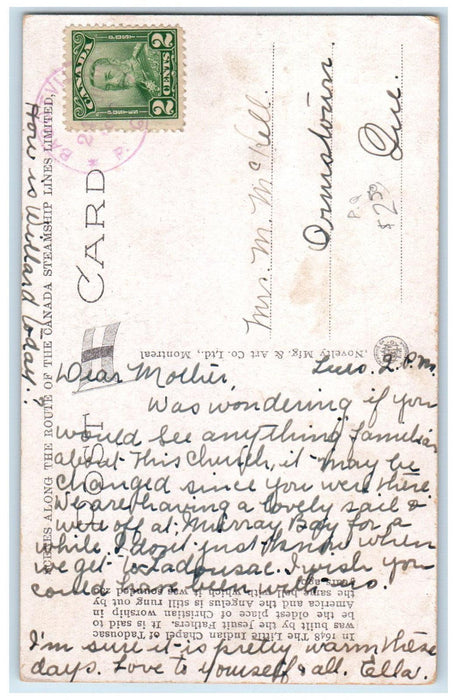 CANADA
POSTES POSTAGE
2 CENTS 2
BA
P.
SCENES ALONG THE ROUTE OF THE CANADA STEAMSHIP LINES LIMITED,
POST CARD
Novelty Mfg. & Art Co. Ltd., Montreal
Mrs. M. McKell.
Ormstown.
Que.
P.Q
$2.50
How is Willard today?
Dear Mother, Tues. 2 P.M.
Was wondering if you
would see anything familiar
about this church, it may be
changed since you were there.
We are having a lovely sail &
were off at Murray Bay for a
while. I don't just know when
we get to Tadousac. I wish you
could have been with us.
I'm sure it is pretty warm these
days. Love to yourself & all. Ella.
In 1648 The Little Indian Chapel of Tadousac
was built by the Jesuit Fathers. It is said to
be the oldest place of Christian worship in
America and the Angelus is still rung out by
the same bell with which it was sounded 250
years ago.